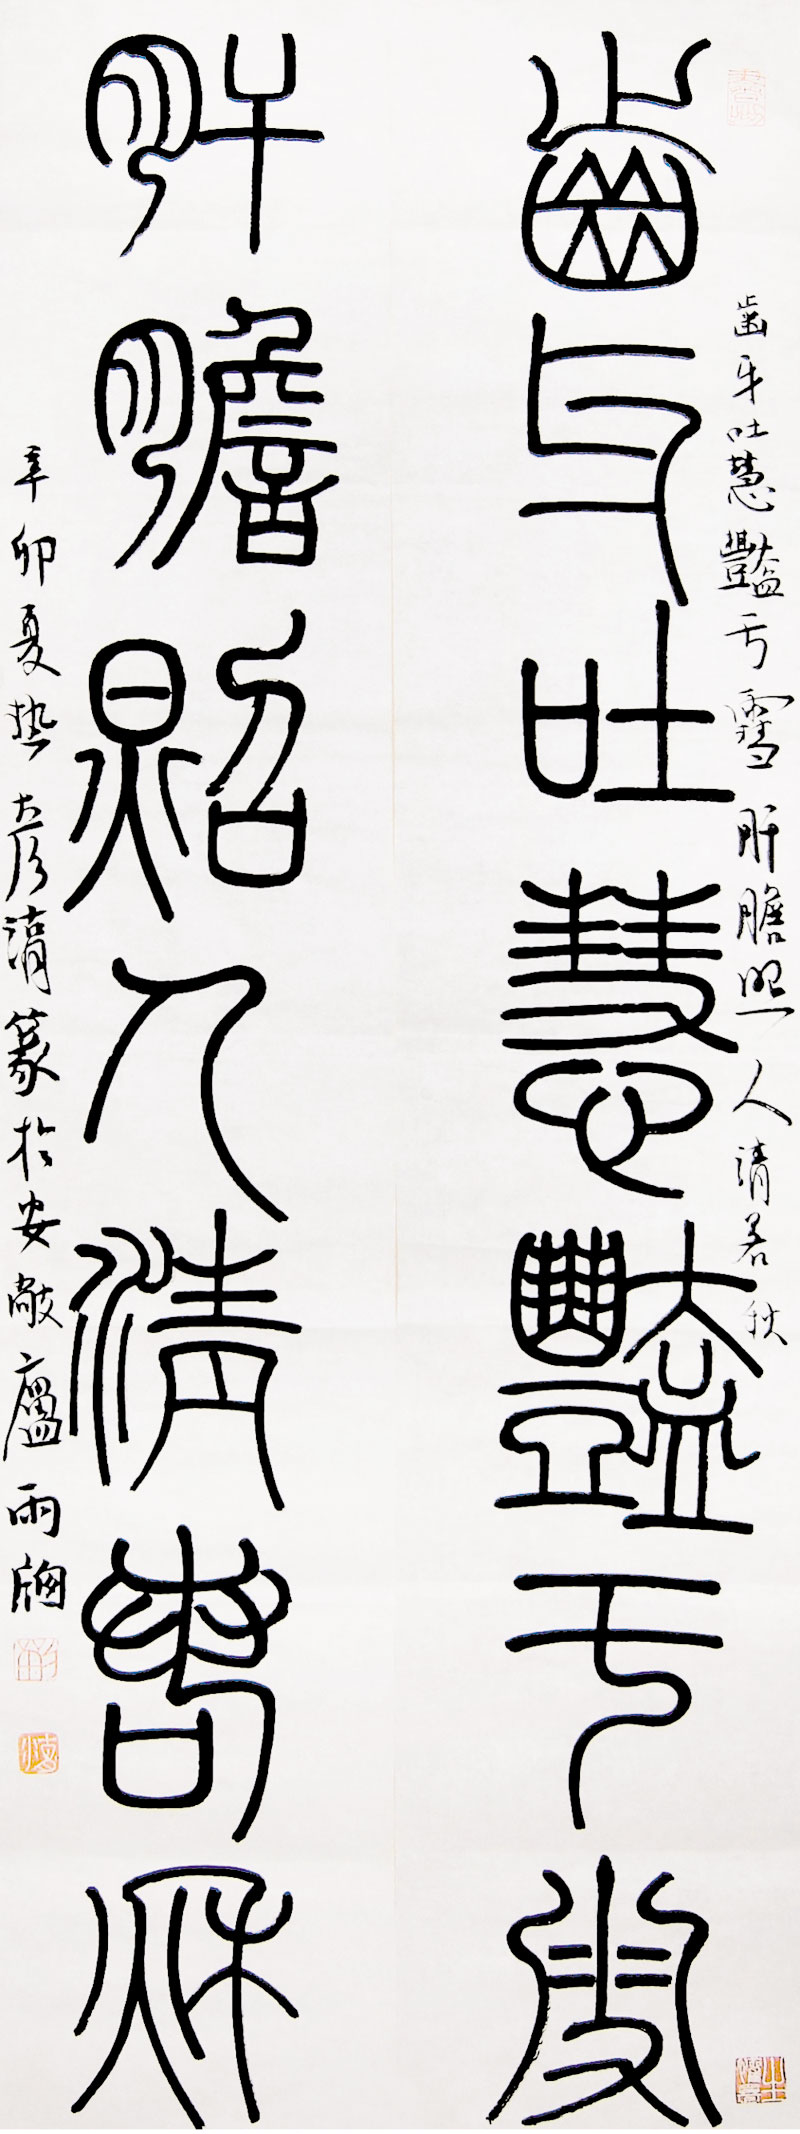 齒牙吐慧豔于雪
肝膽照人清若秋
齒牙吐慧豔于雪肝膽照人清若秋
辛卯夏热彦湖篆於安敞廬雨牕